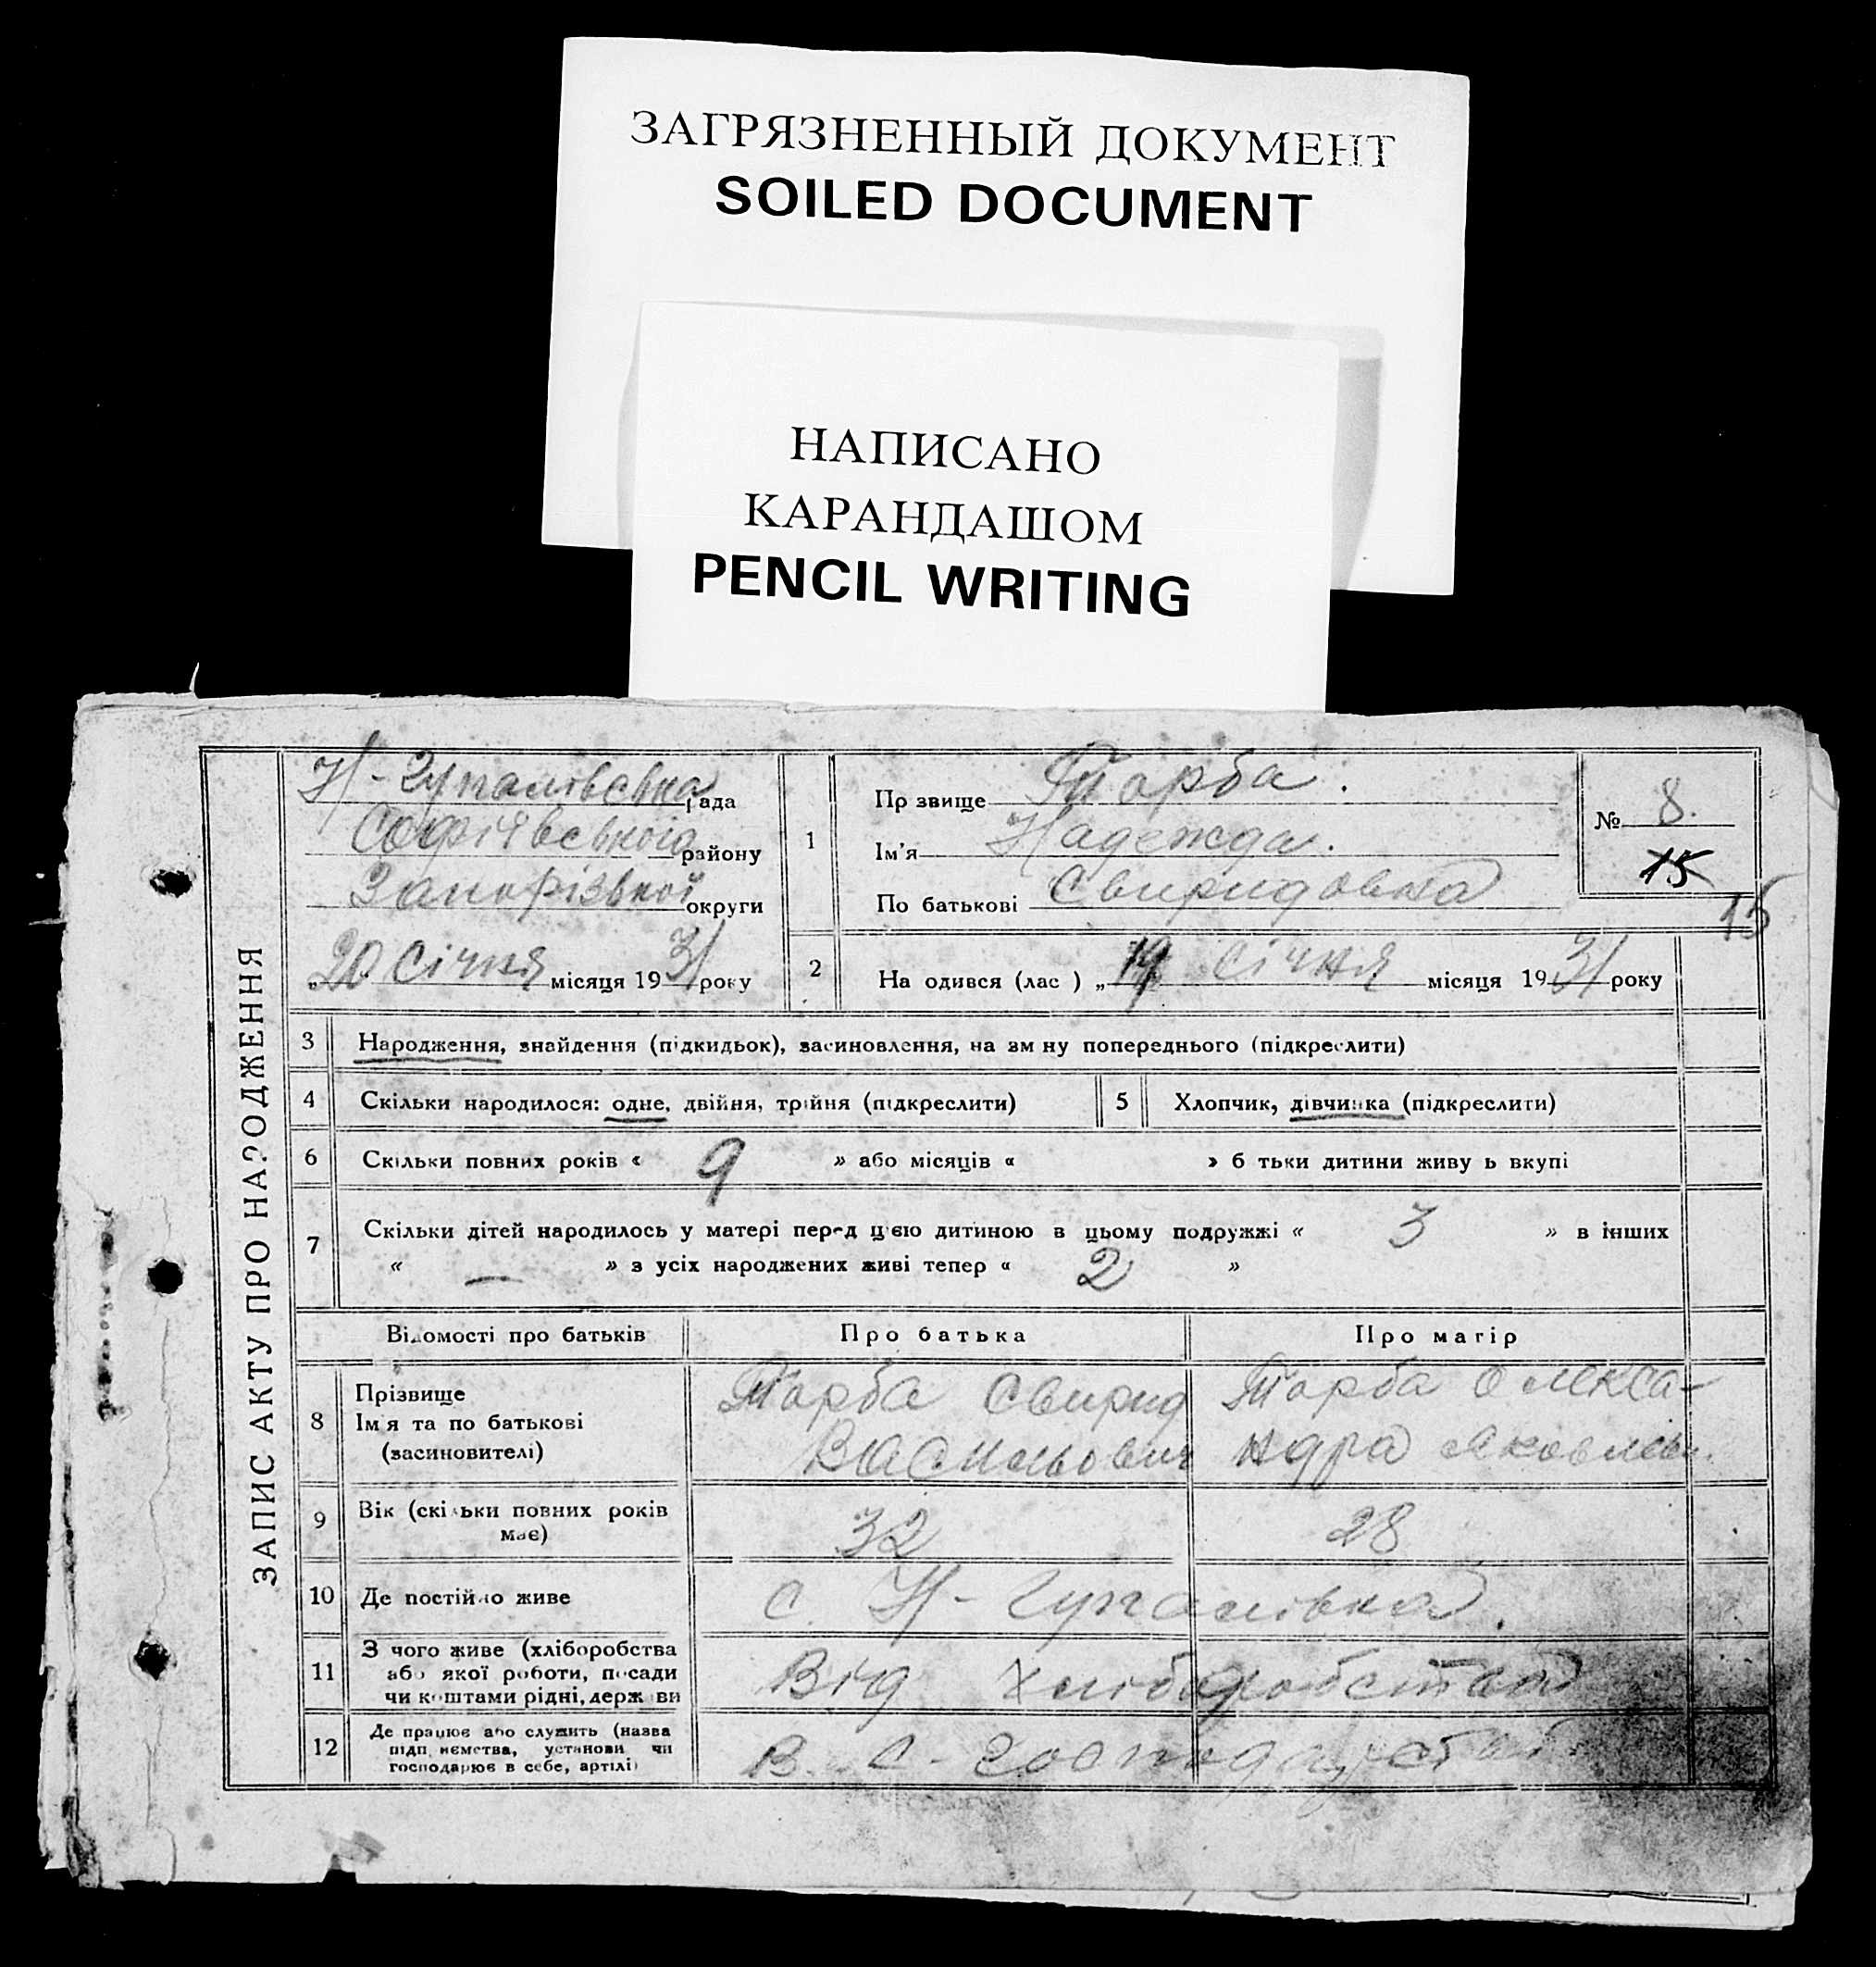 ЗАГРЯЗНЕННЫЙ ДОКУМЕНТ
SOILED DOCUMENT
НАПИСАНО
КАРАНДАШОМ
PENCIL WRITING
ЗАПИС АКТУ ПРО НАРОДЖЕННЯ
Н-Гупалівська рада
Софіївського району
Запорізької округи
„20 Січня місяця 1931 року
1
Пр звище Торба.
Ім'я Надежда.
По батькові Свиридовна
№ 8.
15
15
2
На одився (лас ) „19 Січня місяця 1931 року
3 Народження, знайдення (підкидьок), засиновлення, на зм ну попереднього (підкреслити)
4 Скільки народилося: одне, двійня, трійня (підкреслити) 5 Хлопчик, дівчинка (підкреслити)
6 Скільки повних років « 9 » або місяців « » б тьки дитини живу ь вкупі
7 Скільки дітей народилось у матері перед цією дитиною в цьому подружжі « 3 » в інших
« — » з усіх народжених живі тепер « 2 »
Відомості про батьків Про батька Про матір
8 Прізвище
Ім'я та по батькові
(засиновителі)
Торба Свирид
Васильович
Торба Олекса-
ндра Яковлевн.
9 Вік (скільки повних років
має)
32 28
10 Де постійно живе с. Н-Гупалівка.
11 З чого живе (хліборобства
або якої роботи, посади
чи коштами рідні, держави
Від хліборобства
12 Де працює або служить (назва
підприємства, установи чи
господарює в себе, артілі)
В. С-господарстві.